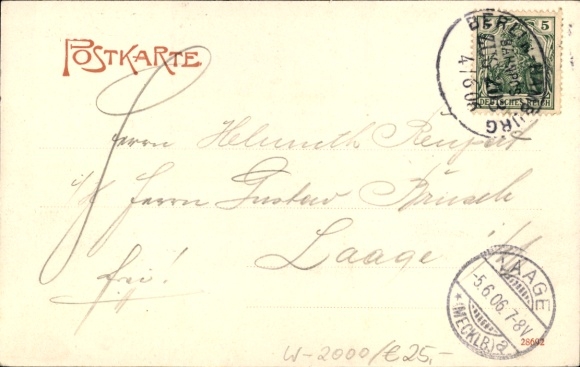 POSTKARTE
5
DEUTSCHES REICH
BERLIN HAMBURG
BAHNPOST
4 6 06
Herrn Helmuth
i/H Herrn Gustav
Laage i/
frei!
LAAGE
-5.6.06. 7-8V.
* (MECKLB.) a
28692
W-2000/€25,-